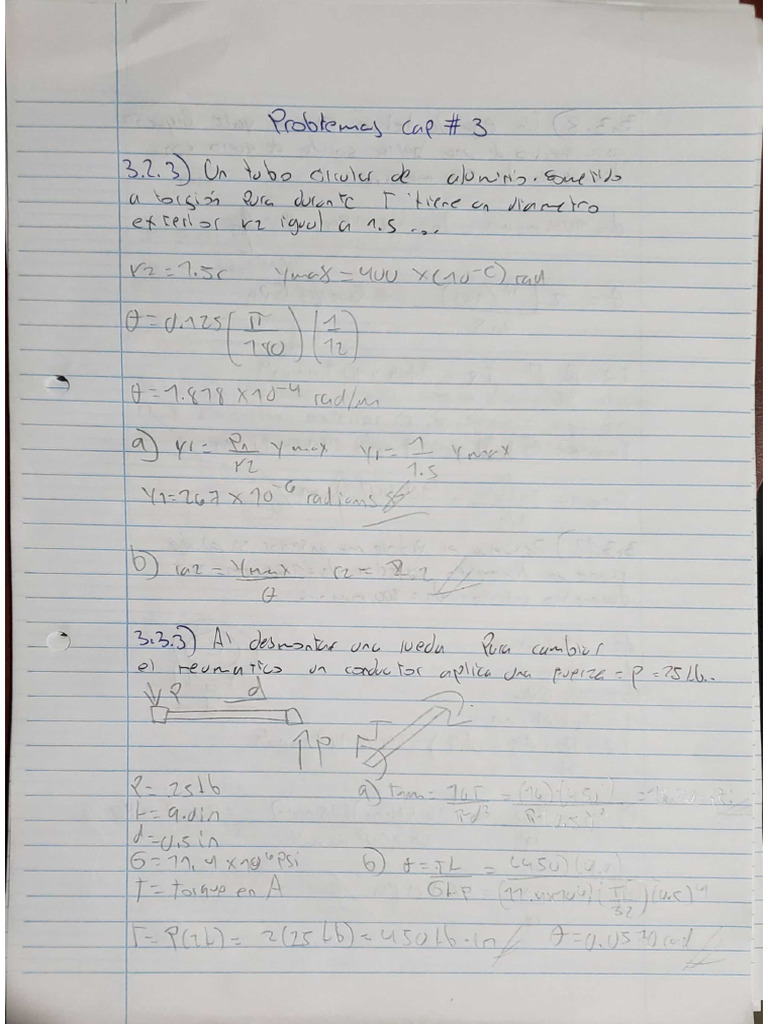 Problemas cap # 3
3.2.3) Un tubo circular de aluminio. Sometido
a torsión Pura durante T tiene un diametro
exterior r2 igual a 1.5 ...
r2 = 1.5 γmax = 400 × (10⁻⁶) rad
θ = 0.125 (π/180) (1/12)
θ = 1.818 × 10⁻⁴ rad/in
a) γ1 = r1/r2 γmax γ1 = 1/1.5 γmax
γ1 = 267 × 10⁻⁶ radians
b) = γmax/θ r2 = 2.2
3.3.3) Al desmontar una rueda Para cambiar
el neumatico un conductor aplica una fuerza = P = 25 Lb..
P d
P T
P = 25 lb
L = 9.0in
d = 0.5 in
G = 11.4 × 10⁶ Psi
T = torque en A
a) = 16T/πd³ =
b) θ = TL/GIP = (450)/(11.4×10⁶)(π/32)(0.5)⁴
T = P(2L) = 2(25 Lb) = 450 Lb-in θ = 0.0570 rad